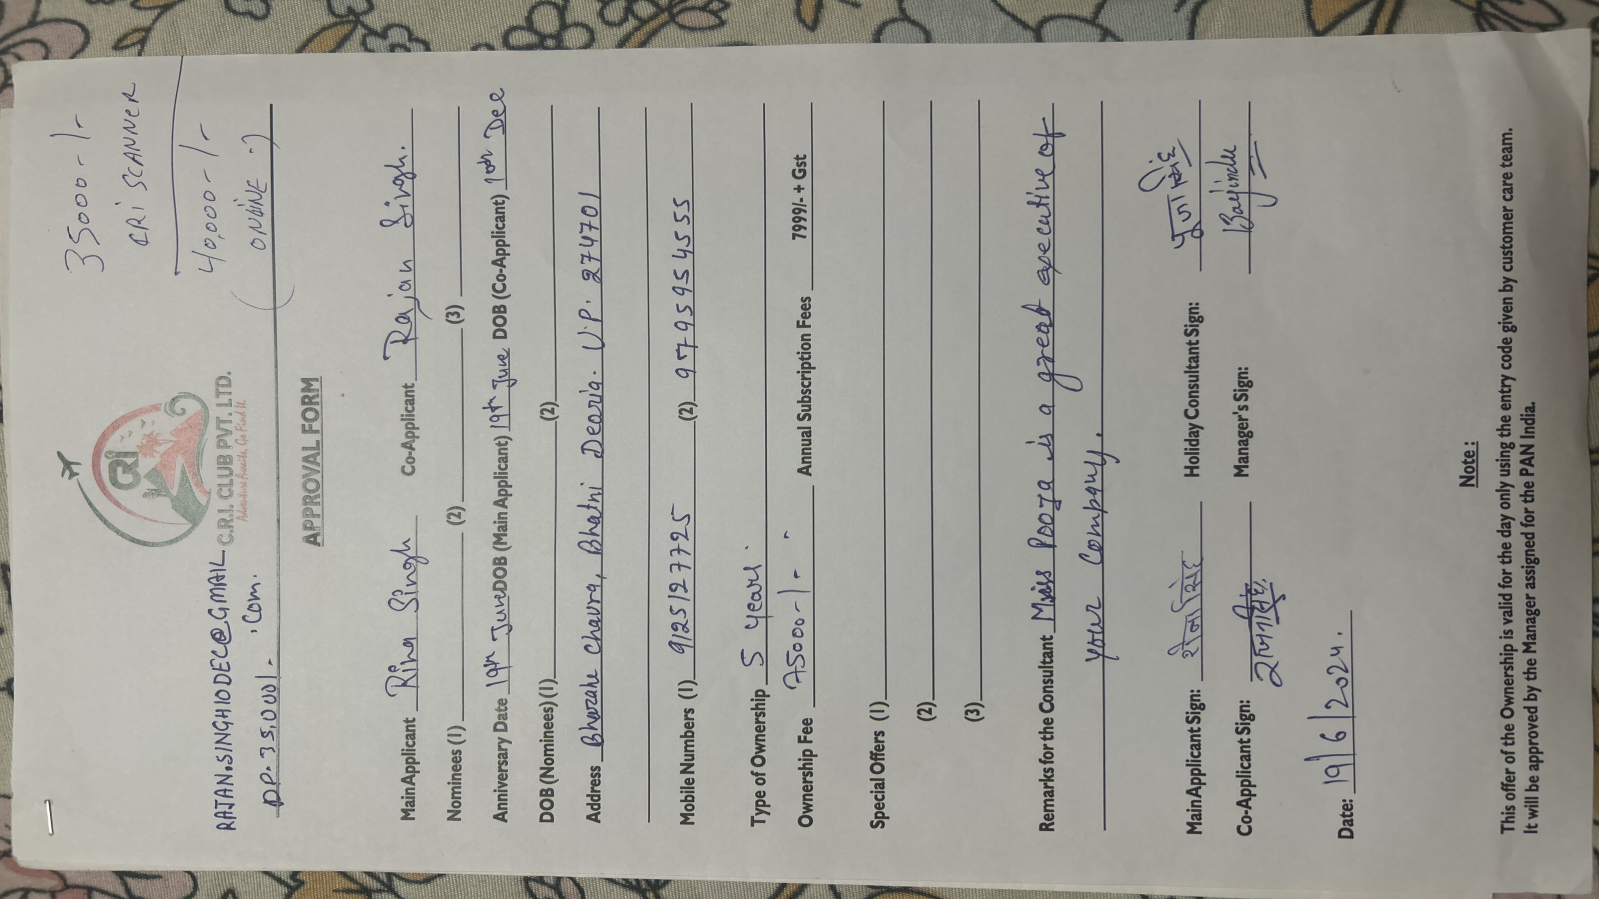 35000-/-
CRI SCANNER
40,000-/-
(ONLINE :)
RAJAN.SINGH10DEC@GMAIL
.Com.
DP. 35,000/-
CRI
C.R.I. CLUB PVT. LTD.
APPROVAL FORM
Main Applicant Rina Singh Co-Applicant Rajan Singh.
Nominees (1) (2) (3)
Anniversary Date 19th June DOB (Main Applicant) 19th June DOB (Co-Applicant) 10th Dec
DOB (Nominees) (1) (2)
Address Bharahe Chaura, Bhatni Deoria. U.P. 274701
Mobile Numbers (1) 9125127725 (2) 9795954555
Type of Ownership 5 years.
Ownership Fee 75000-/- Annual Subscription Fees 7999/- + Gst
Special Offers (1)
(2)
(3)
Remarks for the Consultant Miss Pooja is a great executive of
your Company.
Main Applicant Sign: Holiday Consultant Sign: पूजा सिंह
Co-Applicant Sign: Manager's Sign:
Date: 19/6/2024.
Note :
This offer of the Ownership is valid for the day only using the entry code given by customer care team.
It will be approved by the Manager assigned for the PAN India.